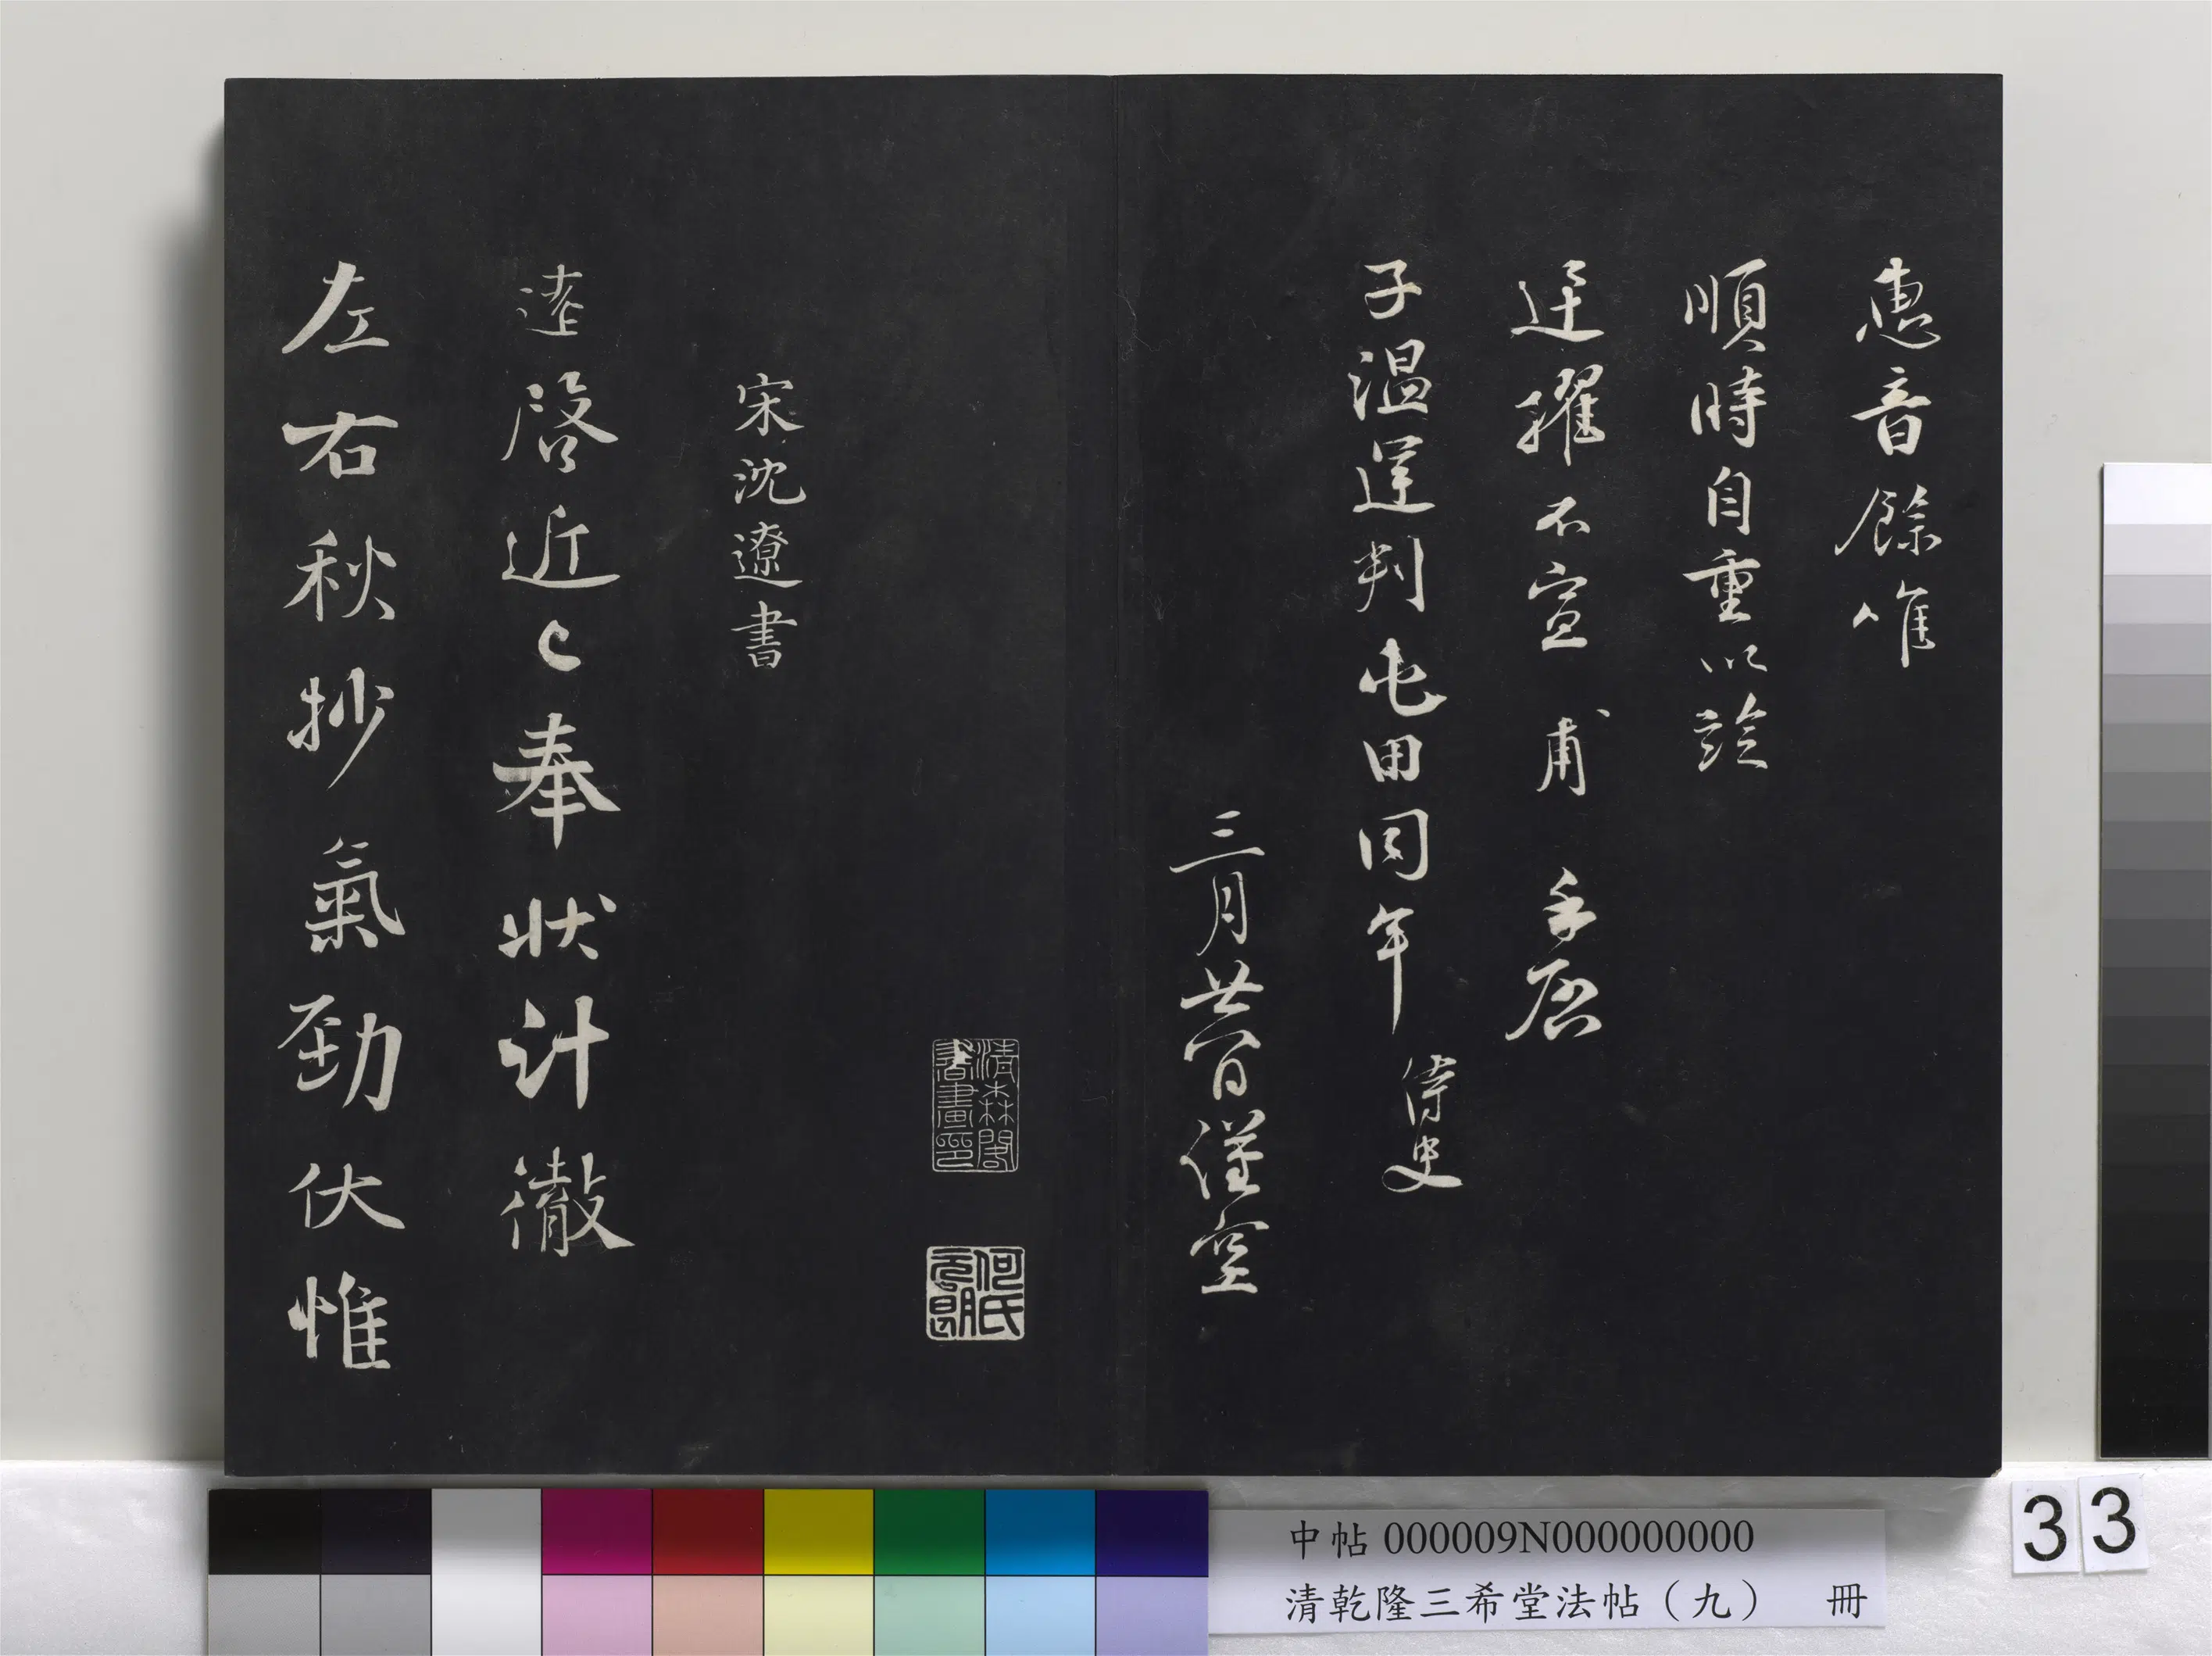 惠音餘唯
順時自重以
遷擢不宣 甫 手啓
子溫運判屯田同年 侍史
三月廿一日謹空
清森閣書畫印
何氏元朗
宋沈遼書
逵啓近〻奉狀計徹
左右秋抄氣勁伏惟
中帖 000009N000000000
清乾隆三希堂法帖（九） 冊
33